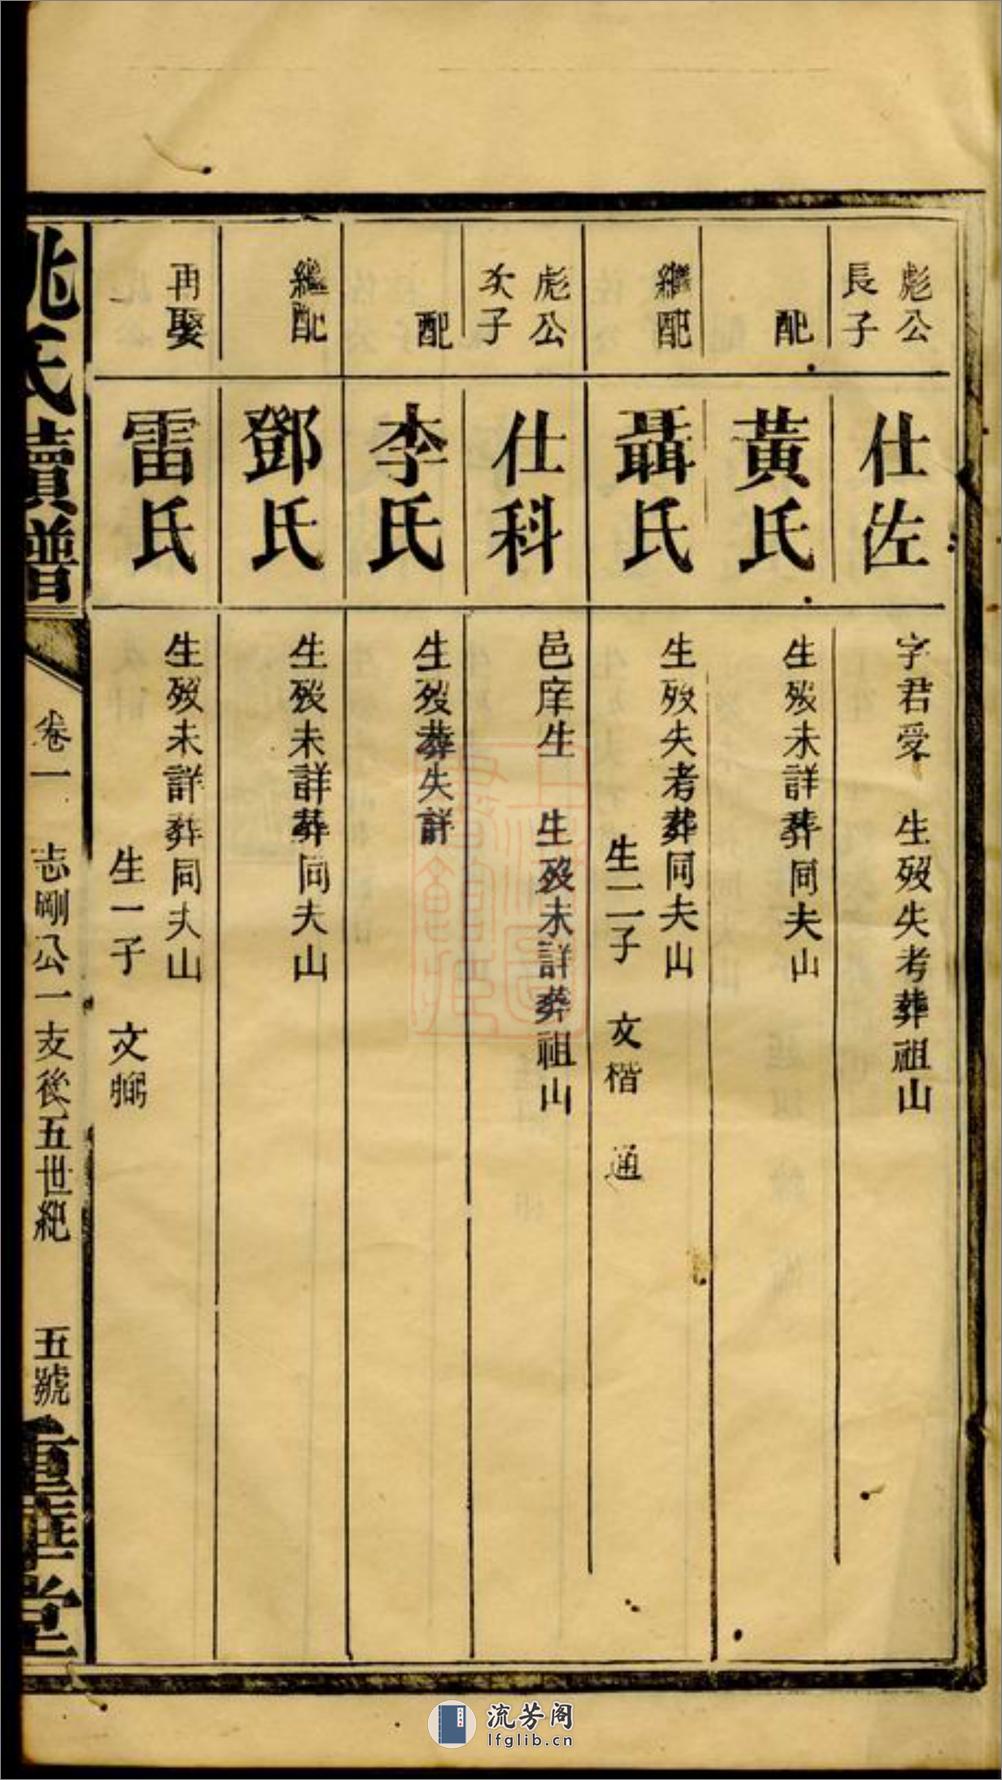 彪公
長子
仕佐
字君受　生歿失考葬祖山
配
黃氏
生歿未詳葬同夫山
繼配
聶氏
生歿失考葬同夫山
生二子　文楷　通
彪公
次子
仕科
邑庠生　生歿未詳葬祖山
配
李氏
生歿葬失詳
繼配
鄧氏
生歿未詳葬同夫山
再娶
雷氏
生歿未詳葬同夫山
生一子　文
姚氏續譜
卷一　志剛公一支後五世紀　五號
重華堂
流芳阁
lfglib.cn